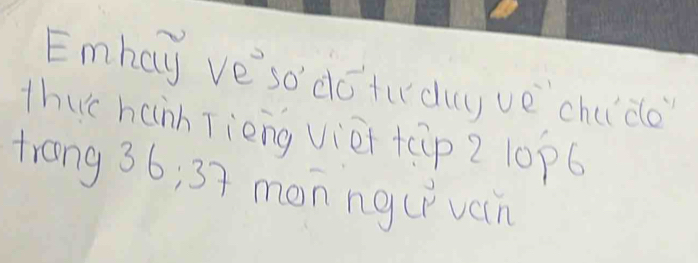 Em hãy vẽ sơ đồ tư duy về chủ đề
thực hành Tiếng Việt tập 2 lớp 6
trang 36;37 môn ngữ văn